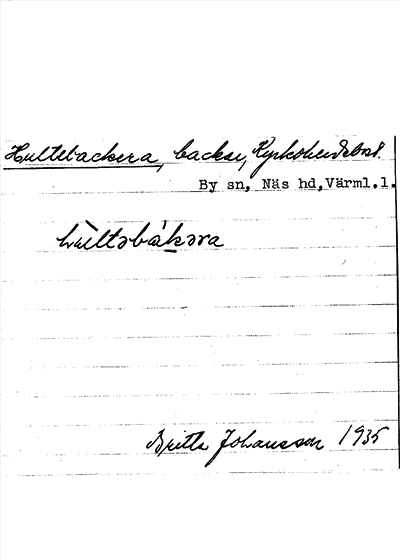 Hultebackera, backe, Kyrkoherdebost.
By sn, Näs hd, Värml.l.
hùltəbákəra
Britta Johansson 1935